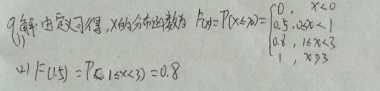 9解:由定义可得,X的分布函数为 F(x)=P(X≤x)={0, x<0
(1)
0.5, 0≤x<1
0.8, 1≤x<3
1, x≥3
(2) F(1.5)=P(1≤x<3)=0.8